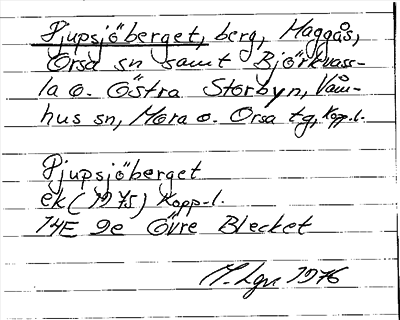 Djupsjöberget, berg, Haggås,
Orsa sn samt Björkvass-
la o. Östra Storbyn, Våm-
hus sn, Mora o. Orsa tg, Kopp.l.
Djupsjöberget
ek (1975) Kopp.l.
14E 9e Övre Blecket
M. Lgn 1976